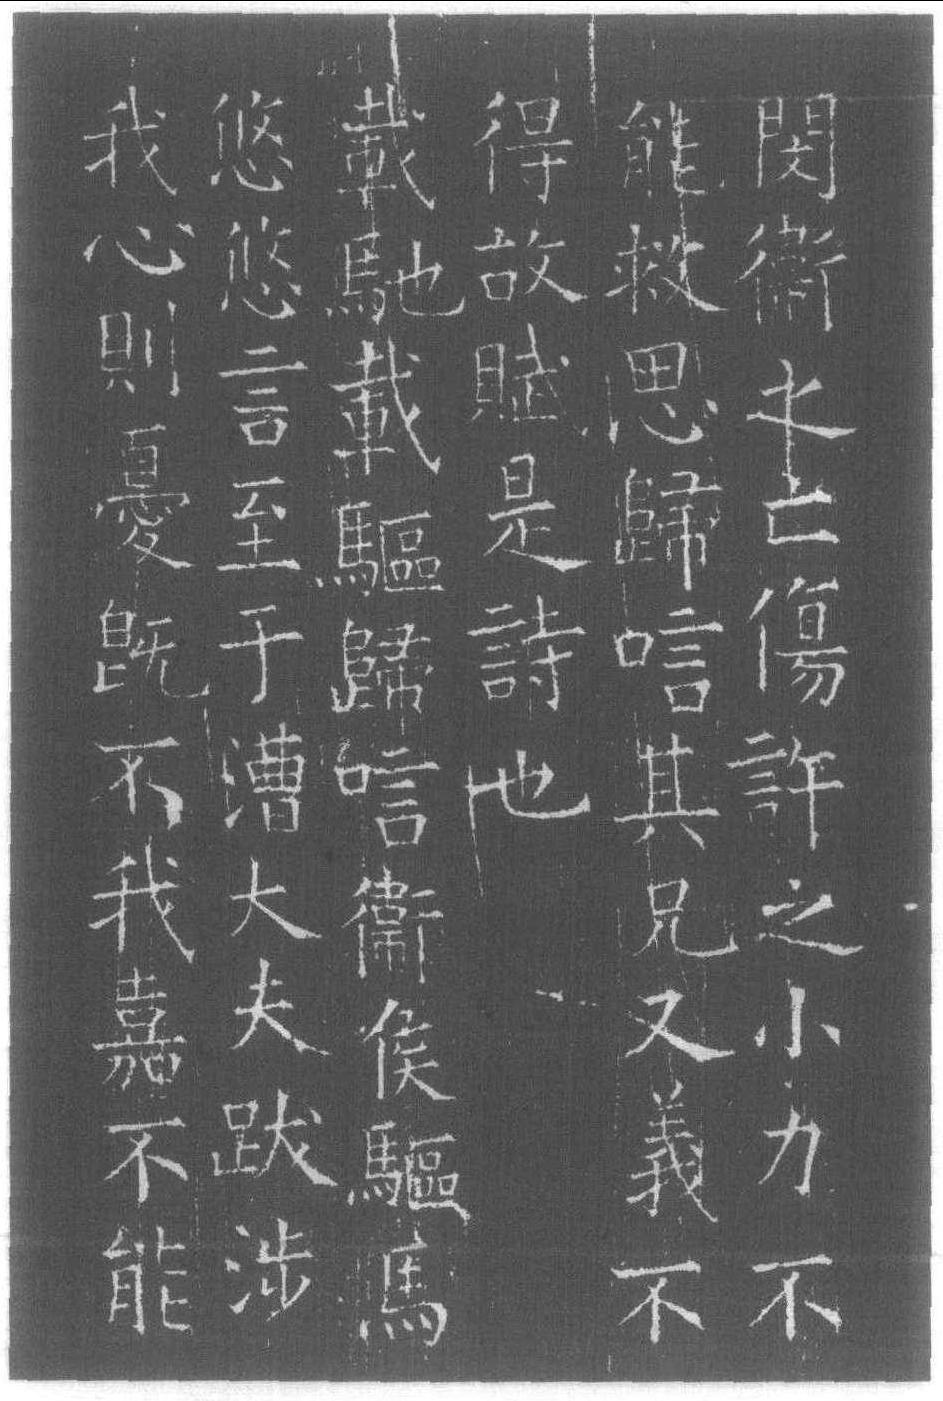 閔衛之亡傷許之小力不
能救思歸唁其兄又義不
得故賦是詩也
載馳載驅歸唁衛侯驅馬
悠悠言至于漕大夫跋涉
我心則憂既不我嘉不能